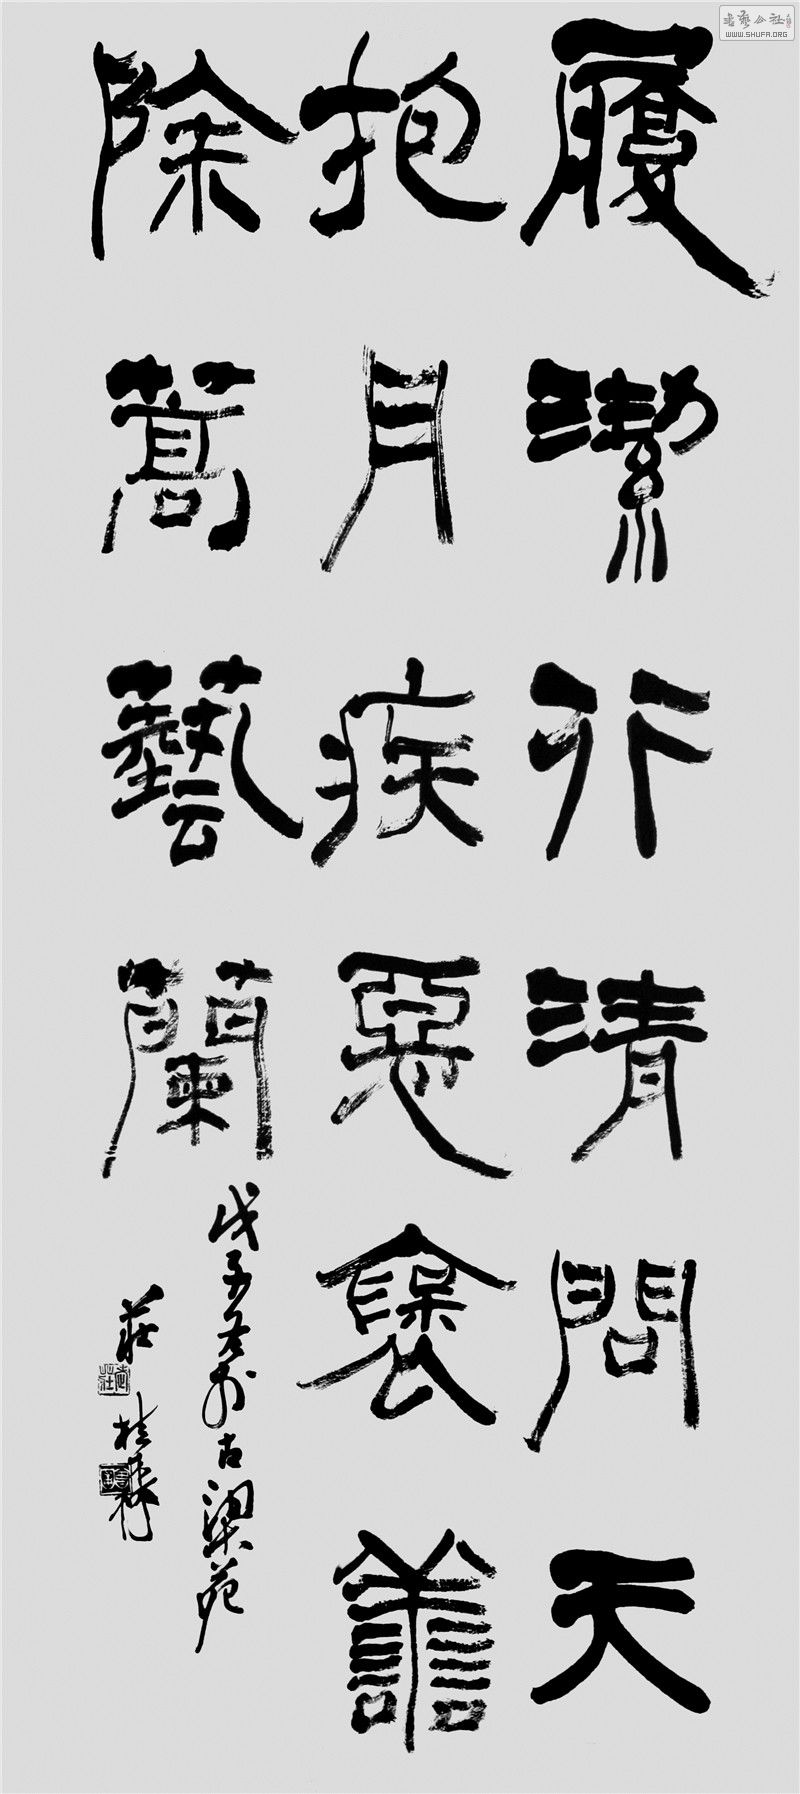 履潔行清問天
抱月疾惡褒善
除蒿藝蘭
戊子冬於古梁苑
莊桂森
書藝公社
WWW.SHUFA.ORG